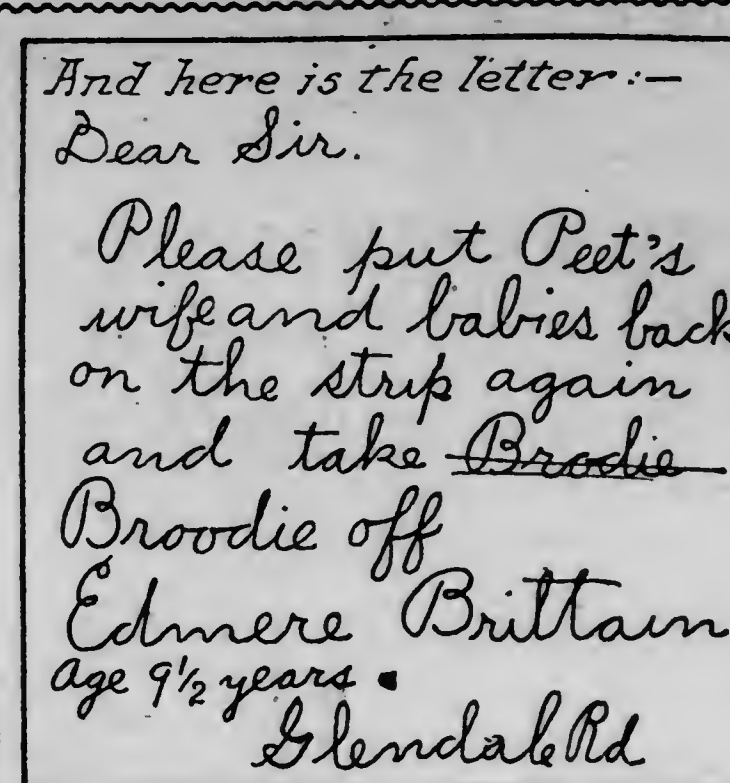 And here is the letter:—
Dear Sir.
Please put Peet's
wife and babies back
on the strip again
and take Brodie
Broodie off
Edmere Brittain
age 9½ years.
Glendale Rd